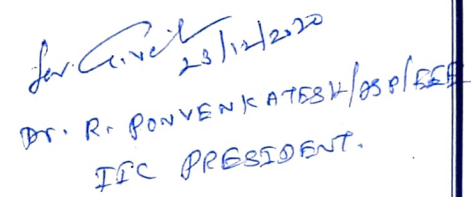 for
23/12/2020
Dr. R. PONVENKATESH/ASP/EEE
IIC PRESIDENT.